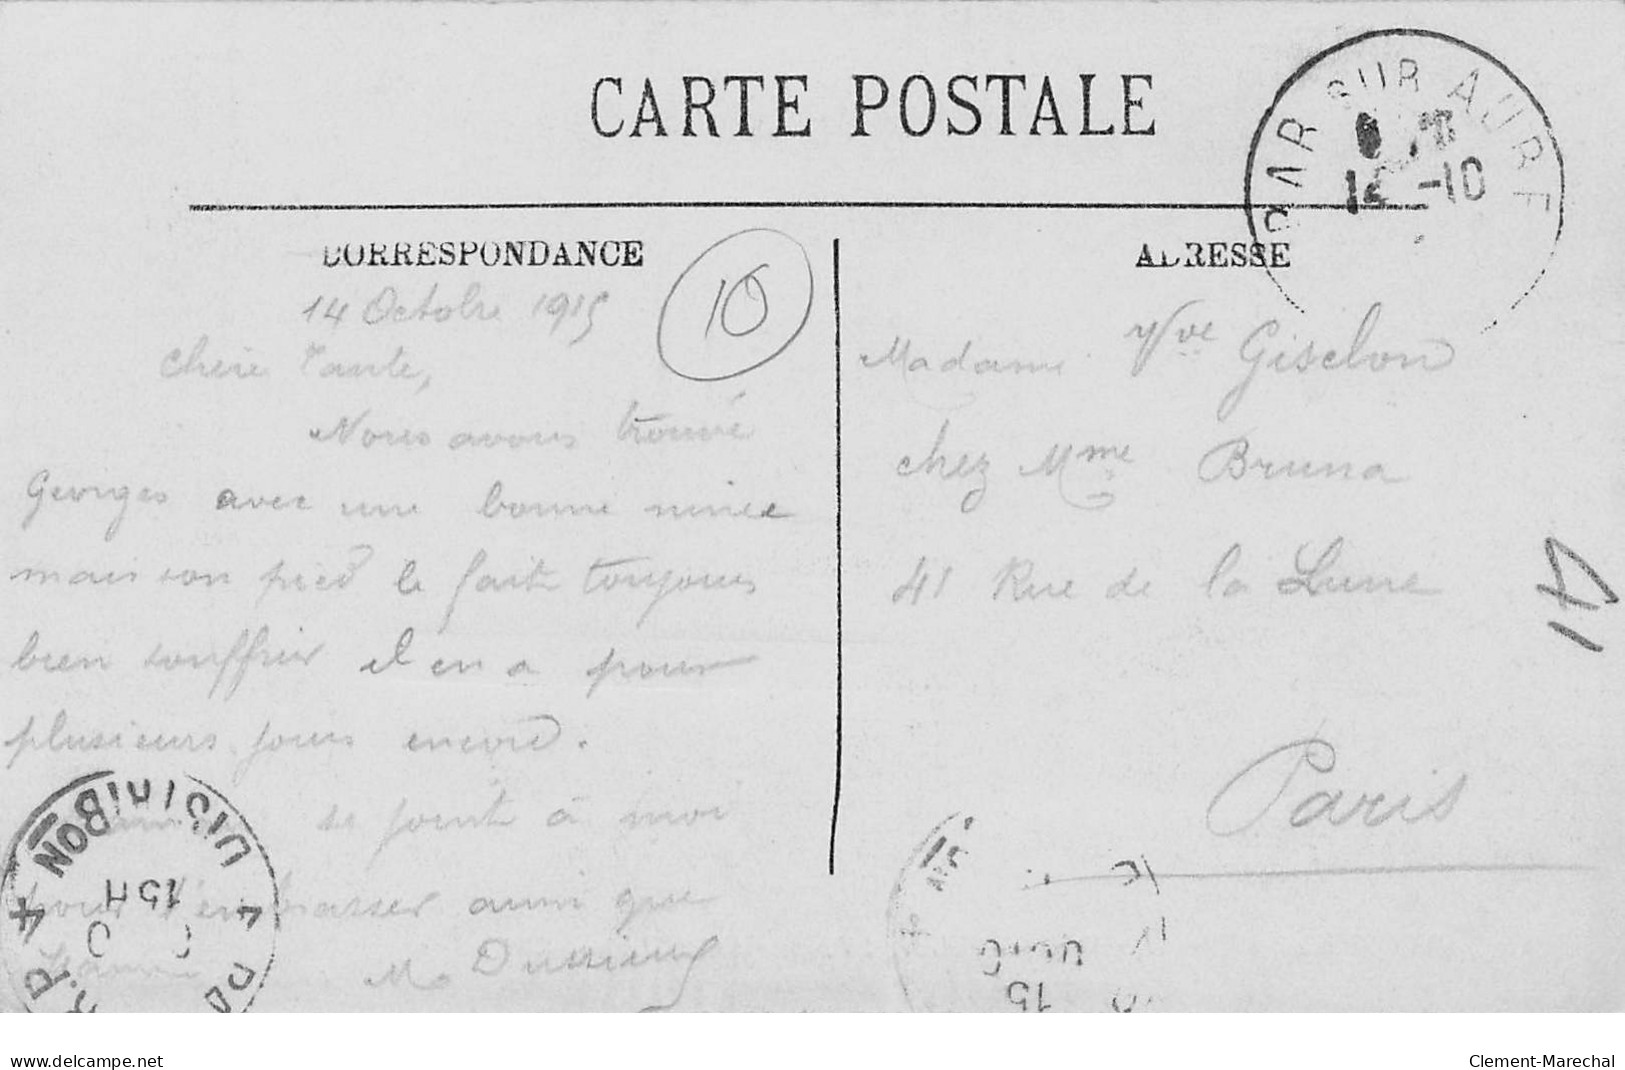 CARTE POSTALE
BAR SUR AUBE
-10
CORRESPONDANCE
ADRESSE
10
14 Octobre 1915
Chère Tante,
Nous avons trouvé
Georges avec une bonne mine
mais son pied le fait toujours
bien souffrir il en a pour
plusieurs jours encore.
se joint à moi
pour t'embrasser ainsi que
M.
Madame Vve Giselon
chez Mme Bruna
41 Rue de la Lune
Paris
DISTRIBON
15H
4
www.delcampe.net
Clement-Marechal